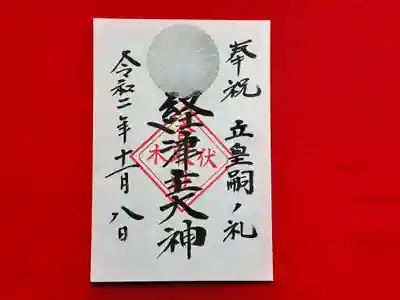 奉祝 立皇嗣ノ礼
経津主大神
令和二年十一月八日